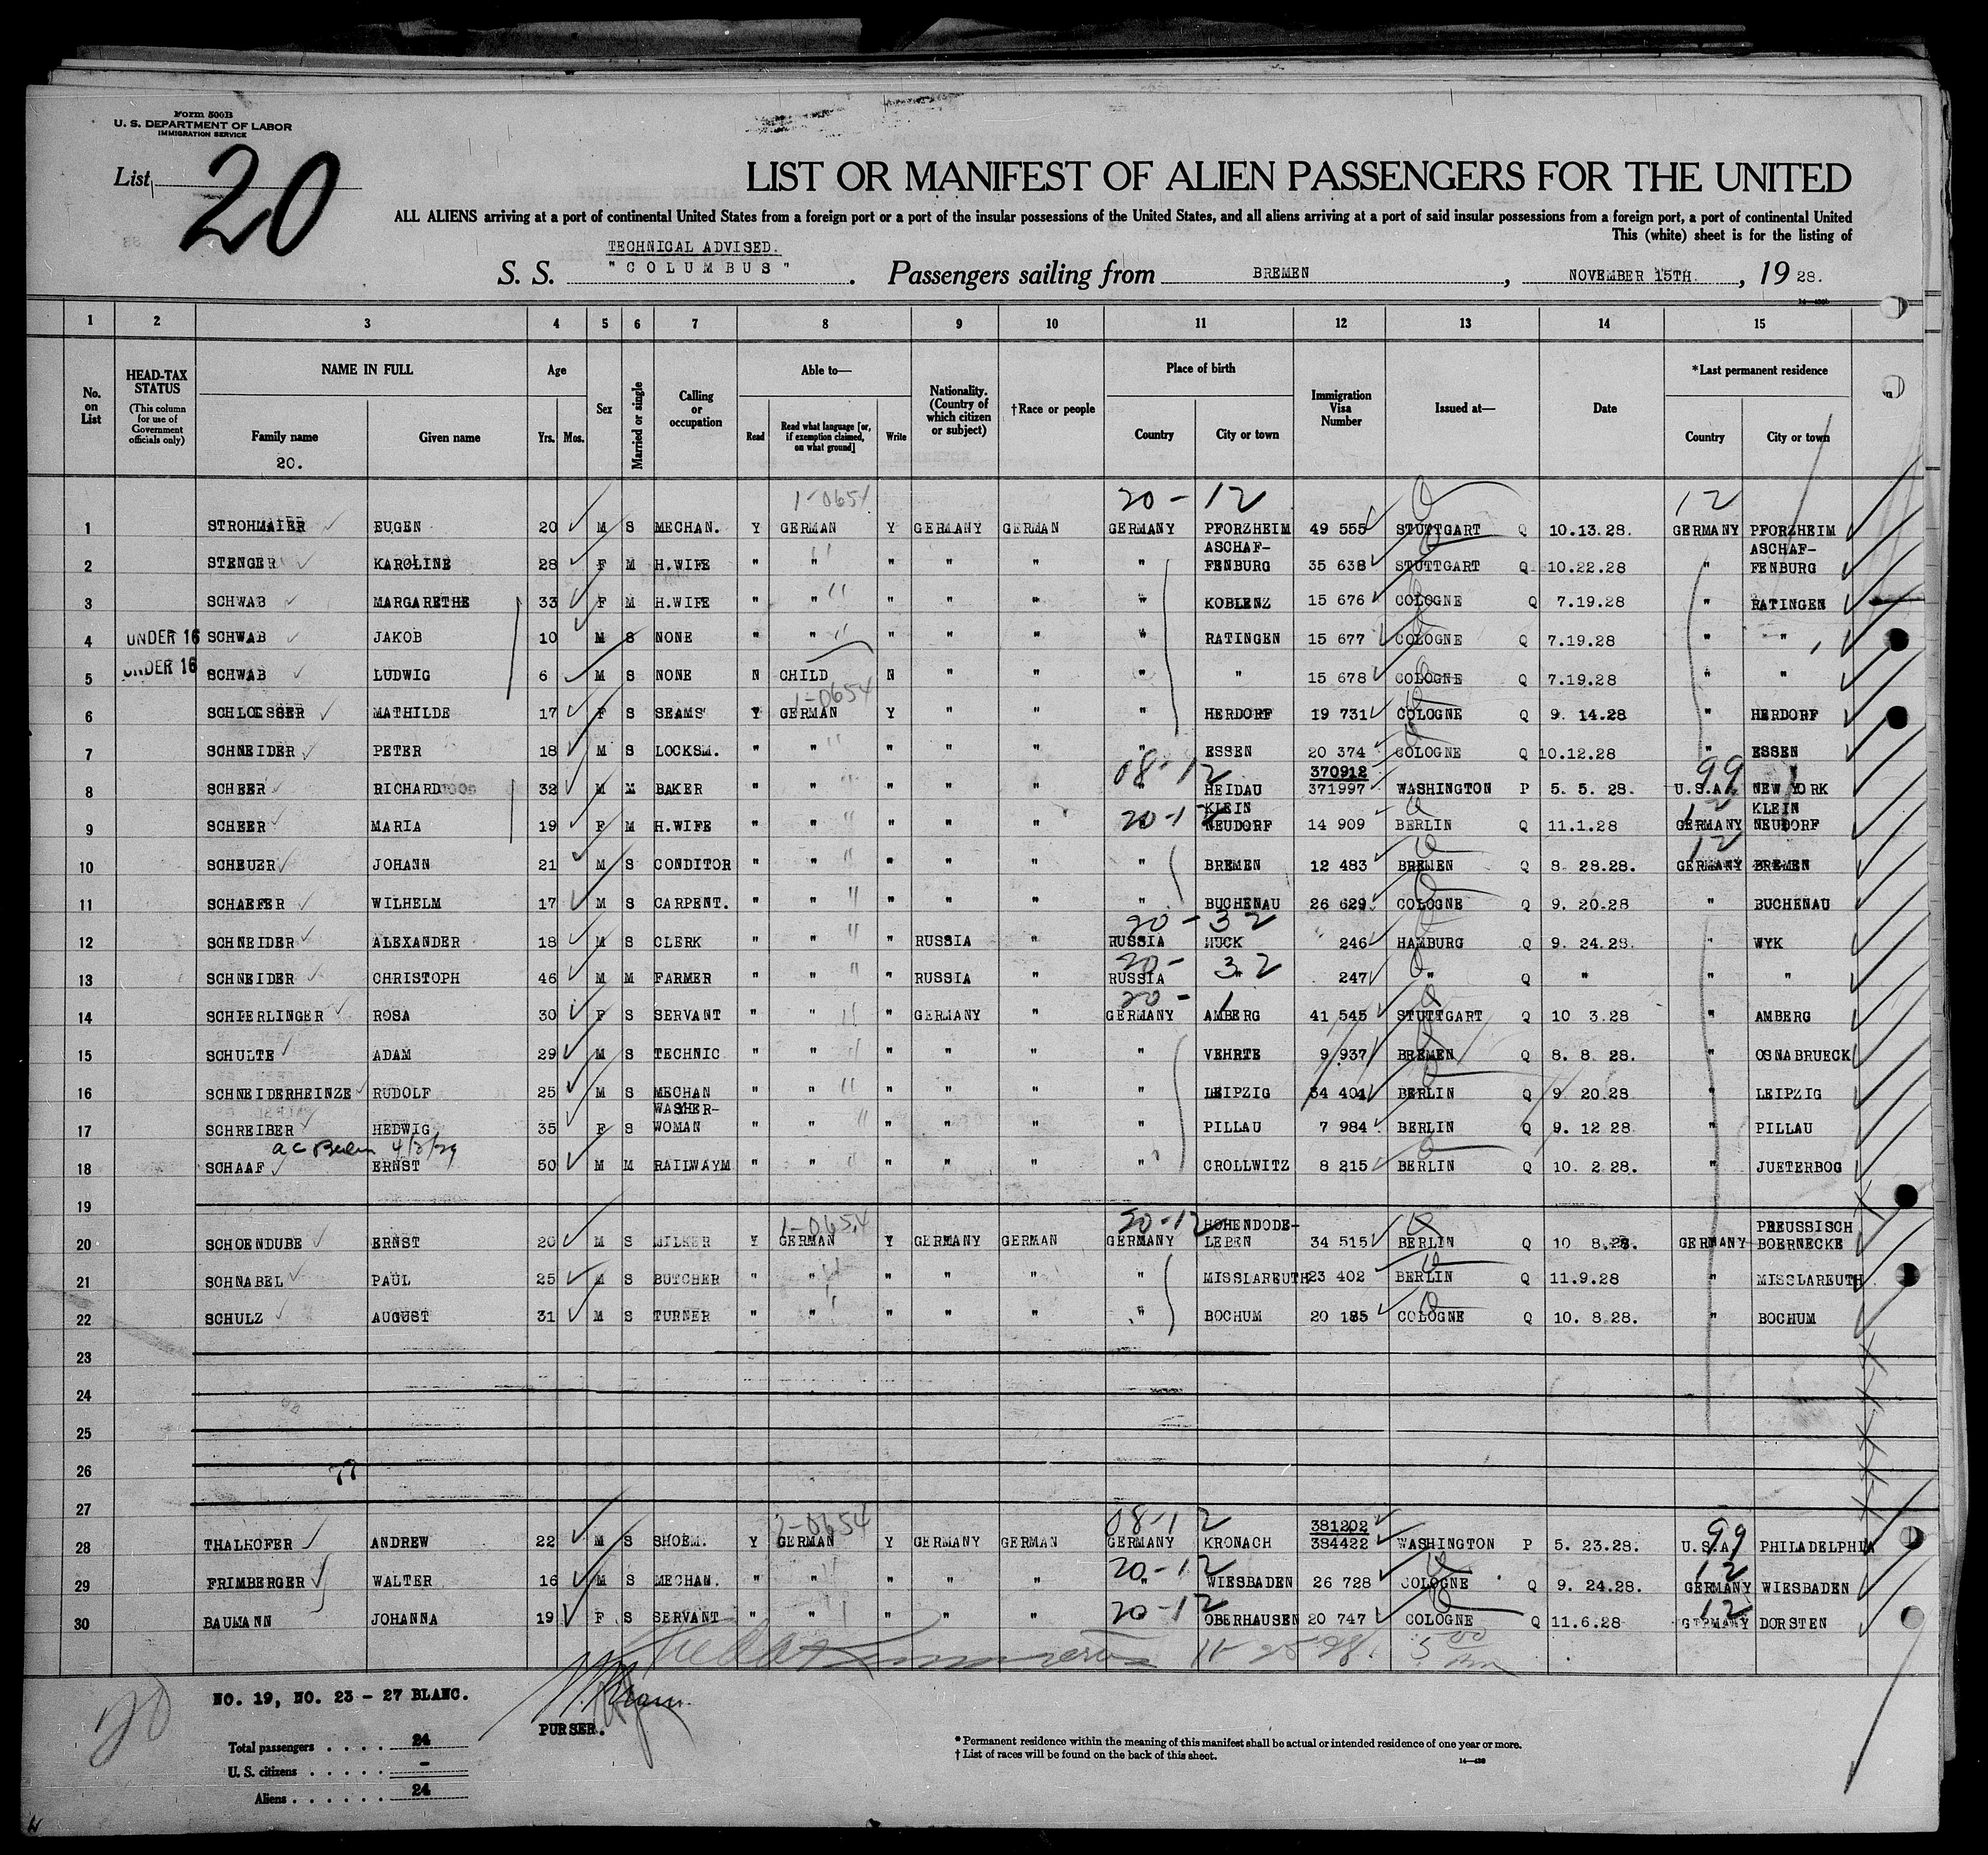 Form 500B
U. S. DEPARTMENT OF LABOR
IMMIGRATION SERVICE
List 20
LIST OR MANIFEST OF ALIEN PASSENGERS FOR THE UNITED
ALL ALIENS arriving at a port of continental United States from a foreign port or a port of the insular possessions of the United States, and all aliens arriving at a port of said insular possessions from a foreign port, a port of continental United
This (white) sheet is for the listing of
TECHNICAL ADVISED.
S. S. "COLUMBUS". Passengers sailing from BREMEN, NOVEMBER 15TH, 1928.
1 2 3 4 5 6 7 8 9 10 11 12 13 14 15
No. on List
HEAD-TAX STATUS (This column for use of Government officials only)
NAME IN FULL
Family name
20.
Given name
Age
Yrs. Mos.
Sex
Married or single
Calling or occupation
Able to—
Read
Read what language [or, if exemption claimed, on what ground]
Write
Nationality. (Country of which citizen or subject)
†Race or people
Place of birth
Country
City or town
Immigration Visa Number
Issued at—
Date
*Last permanent residence
Country
City or town
1-0654 20-12 12
1 STROHMAIER EUGEN 20 M S MECHAN. Y GERMAN Y GERMANY GERMAN GERMANY PFORZHEIM 49 555 STUTTGART Q 10.13.28. GERMANY PFORZHEIM
2 STENGER KAROLINE 28 F M H.WIFE " " " " " " ASCHAF-FENBURG 35 638 STUTTGART Q 10.22.28 " ASCHAF-FENBURG
3 SCHWAB MARGARETHE 33 F M H.WIFE " " " " " " KOBLENZ 15 676 COLOGNE Q 7.19.28 " RATINGEN
4 UNDER 16 SCHWAB JAKOB 10 M S NONE " " " " " " RATINGEN 15 677 COLOGNE Q 7.19.28 " "
5 UNDER 16 SCHWAB LUDWIG 6 M S NONE N CHILD N " " " " 15 678 COLOGNE Q 7.19.28 " "
1-0654
6 SCHLOESSER MATHILDE 17 F S SEAMS Y GERMAN Y " " " HERDORF 19 731 COLOGNE Q 9. 14.28 " HERDORF
7 SCHNEIDER PETER 18 M S LOCKSM. " " " " " " ESSEN 20 374 COLOGNE Q 10.12.28 " ESSEN
08-12 370912 99
8 SCHEER RICHARD 32 M M BAKER " " " " " " HEIDAU 371997 WASHINGTON P 5. 5. 28. U.S.A. NEW YORK
20-12 12
9 SCHEER MARIA 19 F M H.WIFE " " " " " KLEIN NEUDORF 14 909 BERLIN Q 11.1.28 GERMANY KLEIN NEUDORF
12
10 SCHEUER JOHANN 21 M S CONDITOR " " " " " " BREMEN 12 483 BREMEN Q 8. 28.28. GERMANY BREMEN
11 SCHAEFER WILHELM 17 M S CARPENT. " " " " " " BUCHENAU 26 629 COLOGNE Q 9. 20.28 " BUCHENAU
20-32
12 SCHNEIDER ALEXANDER 18 M S CLERK " " " RUSSIA " RUSSIA HUCK 246 HAMBURG Q 9. 24.28. " WYK
20-32
13 SCHNEIDER CHRISTOPH 46 M M FARMER " " " RUSSIA " RUSSIA " 247 " Q " " "
20-1
14 SCHIERLINGER ROSA 30 F S SERVANT " " " GERMANY " GERMANY AMBERG 41 545 STUTTGART Q 10 3.28 " AMBERG
15 SCHULTE ADAM 29 M S TECHNIC " " " " " " VEHRTE 9 937 BREMEN Q 8. 8. 28. " OSNABRUECK
16 SCHNEIDERHEINZE RUDOLF 25 M S MECHAN " " " " " " LEIPZIG 34 404 BERLIN Q 9 20.28 " LEIPZIG
17 SCHREIBER HEDWIG 35 F S WASHER-WOMAN " " " " " " PILLAU 7 984 BERLIN Q 9. 12 28 " PILLAU
a c Berlin 4/3/29
18 SCHAAF ERNST 50 M M RAILWAYM " " " " " " CROLLWITZ 8 215 BERLIN Q 10. 2 28. " JUETERBOG
19
1-0654 20-12
20 SCHOENDUBE ERNST 20 M S MILKER Y GERMAN Y GERMANY GERMAN GERMANY HOHENDODE-LEBEN 34 515 BERLIN Q 10 8.28. GERMANY PREUSSISCH BOERNECKE
21 SCHNABEL PAUL 25 M S BUTCHER " " " " " " MISSLAREUTH 23 402 BERLIN Q 11.9.28 " MISSLAREUTH
22 SCHULZ AUGUST 31 M S TURNER " " " " " " BOCHUM 20 185 COLOGNE Q 10. 8.28. " BOCHUM
23
24
25
26
27
2-0654 08-12 381202 99
28 THALHOFER ANDREW 22 M S SHOEM. Y GERMAN Y GERMANY GERMAN GERMANY KRONACH 384422 WASHINGTON P 5. 23.28. U.S.A. PHILADELPHIA
20-12 12
29 FRIMBERGER WALTER 16 M S MECHAN. " " " " " " WIESBADEN 26 728 COLOGNE Q 9. 24.28. GERMANY WIESBADEN
20-12 12
30 BAUMANN JOHANNA 19 F S SERVANT " " " " " OBERHAUSEN 20 747 COLOGNE Q 11.6.28 GERMANY DORSTEN
20
NO. 19, NO. 23 - 27 BLANC.
PURSER.
Total passengers . . . . 24
U. S. citizens . . . . . -
Aliens . . . . . . 24
*Permanent residence within the meaning of this manifest shall be actual or intended residence of one year or more.
†List of races will be found on the back of this sheet.